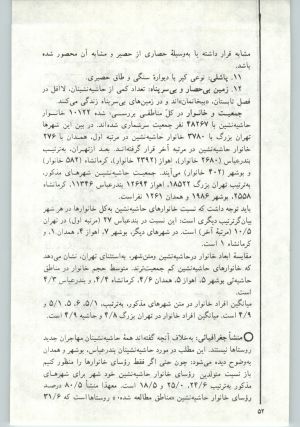 مشابه قرار داشته یا به‌وسیلهٔ حصاری از حصیر و مشابه آن محصور شده
باشد.
۱۱. پاشلی: نوعی کپر با دیوارهٔ سنگی و طاق حصیری.
۱۲. زمین بی‌حصار و بی‌سرپناه: تعداد کمی از حاشیه‌نشینان، لااقل در
فصل تابستان، «بیخانمان»اند و در زمین‌های بی‌سرپناه زندگی می‌کنند
جمعیت و خانوار در کل مناطقی بررسی‌شده ۱۰۱۲۲ خانوار
حاشیه‌نشین با ۴۸۲۶۷ نفر جمعیت سرشماری شده‌اند. در بین این شهرها
تهران بزرگ با ۳۷۸۰ خانوار حاشیه‌نشین در مرتبه اول، همدان با ۲۷۶
خانوار حاشیه‌نشین در مرتبه آخر قرار گرفته‌اند. بعد ازتهران، به‌ترتیب
بندرعباس (۲۶۸۰ خانوار)، اهواز (۲۳۹۲ خانوار)، کرمانشاه (۵۸۲ خانوار)
و بوشهر (۴۰۲ خانوار) می‌آیند. جمعیت حاشیه‌نشین شهرهای مذکور،
به‌ترتیب تهران بزرگ ۱۸۵۲۲، اهواز ۱۲۶۹۴ بندرعباس، ۱۱۳۴۶ کرمانشاه
۲۵۵۸، بوشهر ۱۹۸۶ و همدان ۱۲۶۱ نفراست.
باید توجه داشت که نسبت خانوارهای حاشیه‌نشین به‌کل خانوارها در هر شهر
بیان‌گرترتیب دیگری است: این نسبت در بندرعباس ۲۷ (مرتبه اول) در تهران
۰/۵ (مرتبهٔ آخر) است. در شهرهای دیگر، بوشهر ۷، اهواز ۴، همدان ۱، و
کرمانشاه ۱ است.
مقایسهٔ ابعاد خانوار درحاشیه‌نشین ومتن‌شهر، به‌استثنای تهران، نشان می‌دهد
که خانوارهای حاشیه‌نشین کم جمعیت‌ترند. متوسط حجم خانوار در مناطق
حاشیه‌ئی بوشهر ۵، اهواز ۵، همدان ۴/۶، کرمانشاه ۴/۴، و بندرعباس ۴/۳
است.
میانگین افراد خانوار در متن شهرهای مذکور، به‌ترتیب، ۵/۱، ۶، ۵/۱ و
۴/۹ است. میانگین افراد خانوار در تهران بزرگ ۴/۸ و حاشیه ۴/۹ است.
منشأ جغرافیائی: به‌خلاف آنچه گفته‌اند همهٔ حاشیه‌نشینان مهاجران جدید
روستاها نیستند. این مطلب در مورد حاشیه‌نشینان بندرعباس، بوشهر و همدان
به‌وضوح دیده می‌شود؛ چون حتی اگر فقط رؤسای خانوارها را منظور کنیم
می‌بینیم منشأ رؤسای خانوار حاشیه‌نشین خود شهر برای شهرهای
مذکور به‌ترتیب ۲۴/۶، ۲۵/۰ و ۱۸/۵ است. معهذا منشأ ۸۰/۵ درصد
رؤسای خانوار حاشیه‌نشین «مناطق مطالعه شده»، روستاها است که ۳۱/۶
۵۲